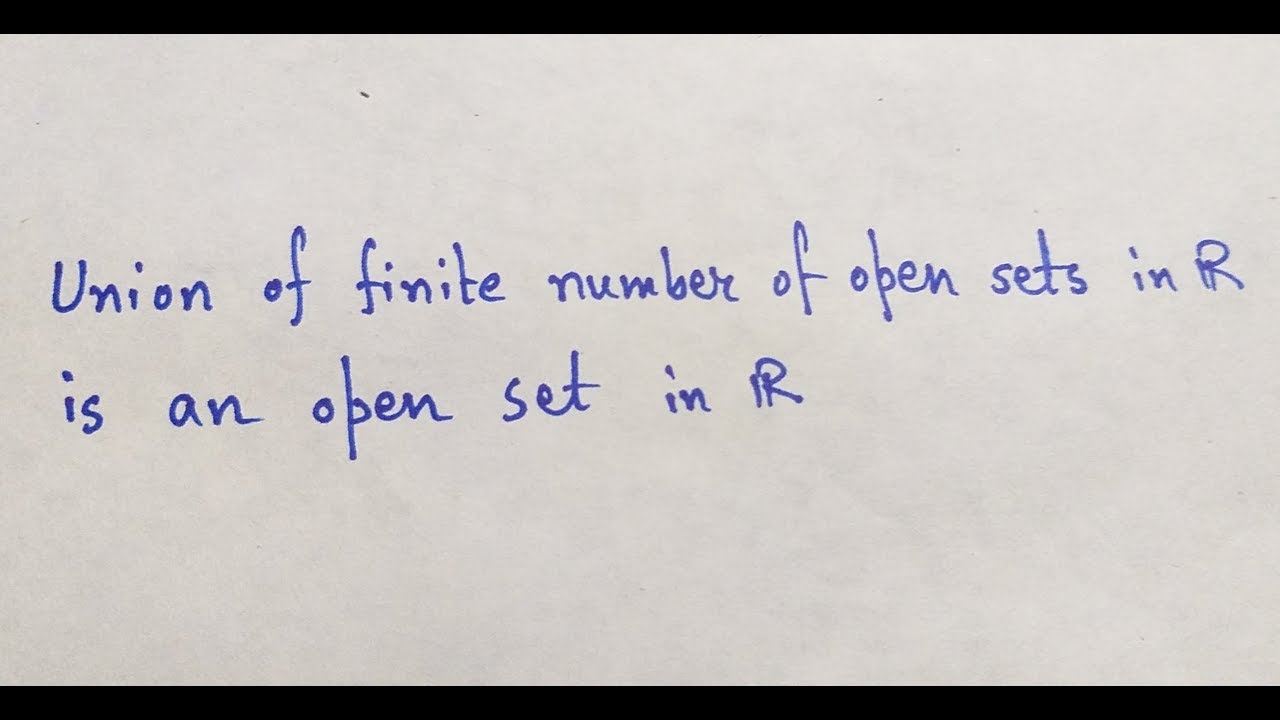 Union of finite number of open sets in ℝ
is an open set in ℝ